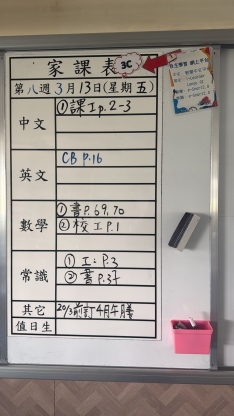 家課表 3C
第八週 3月13日(星期五)
中文 ①課工p.2-3
英文 CB p.16
數學 ①書P.69,70
②校工P.1
常識 ①工:P.3
②書P.37
其它 20/3前訂4月午膳
值日生
自主學習 網上平台